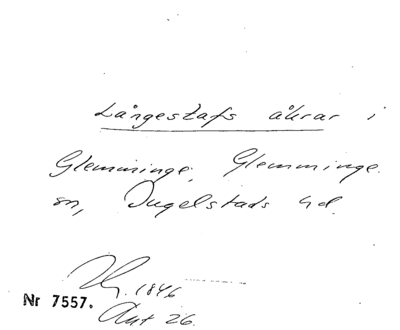 Långestafs åkrar i
Glemminge, Glemminge
sn, Ingelstads hd.
1846
Nr 7557.
Akt 26.